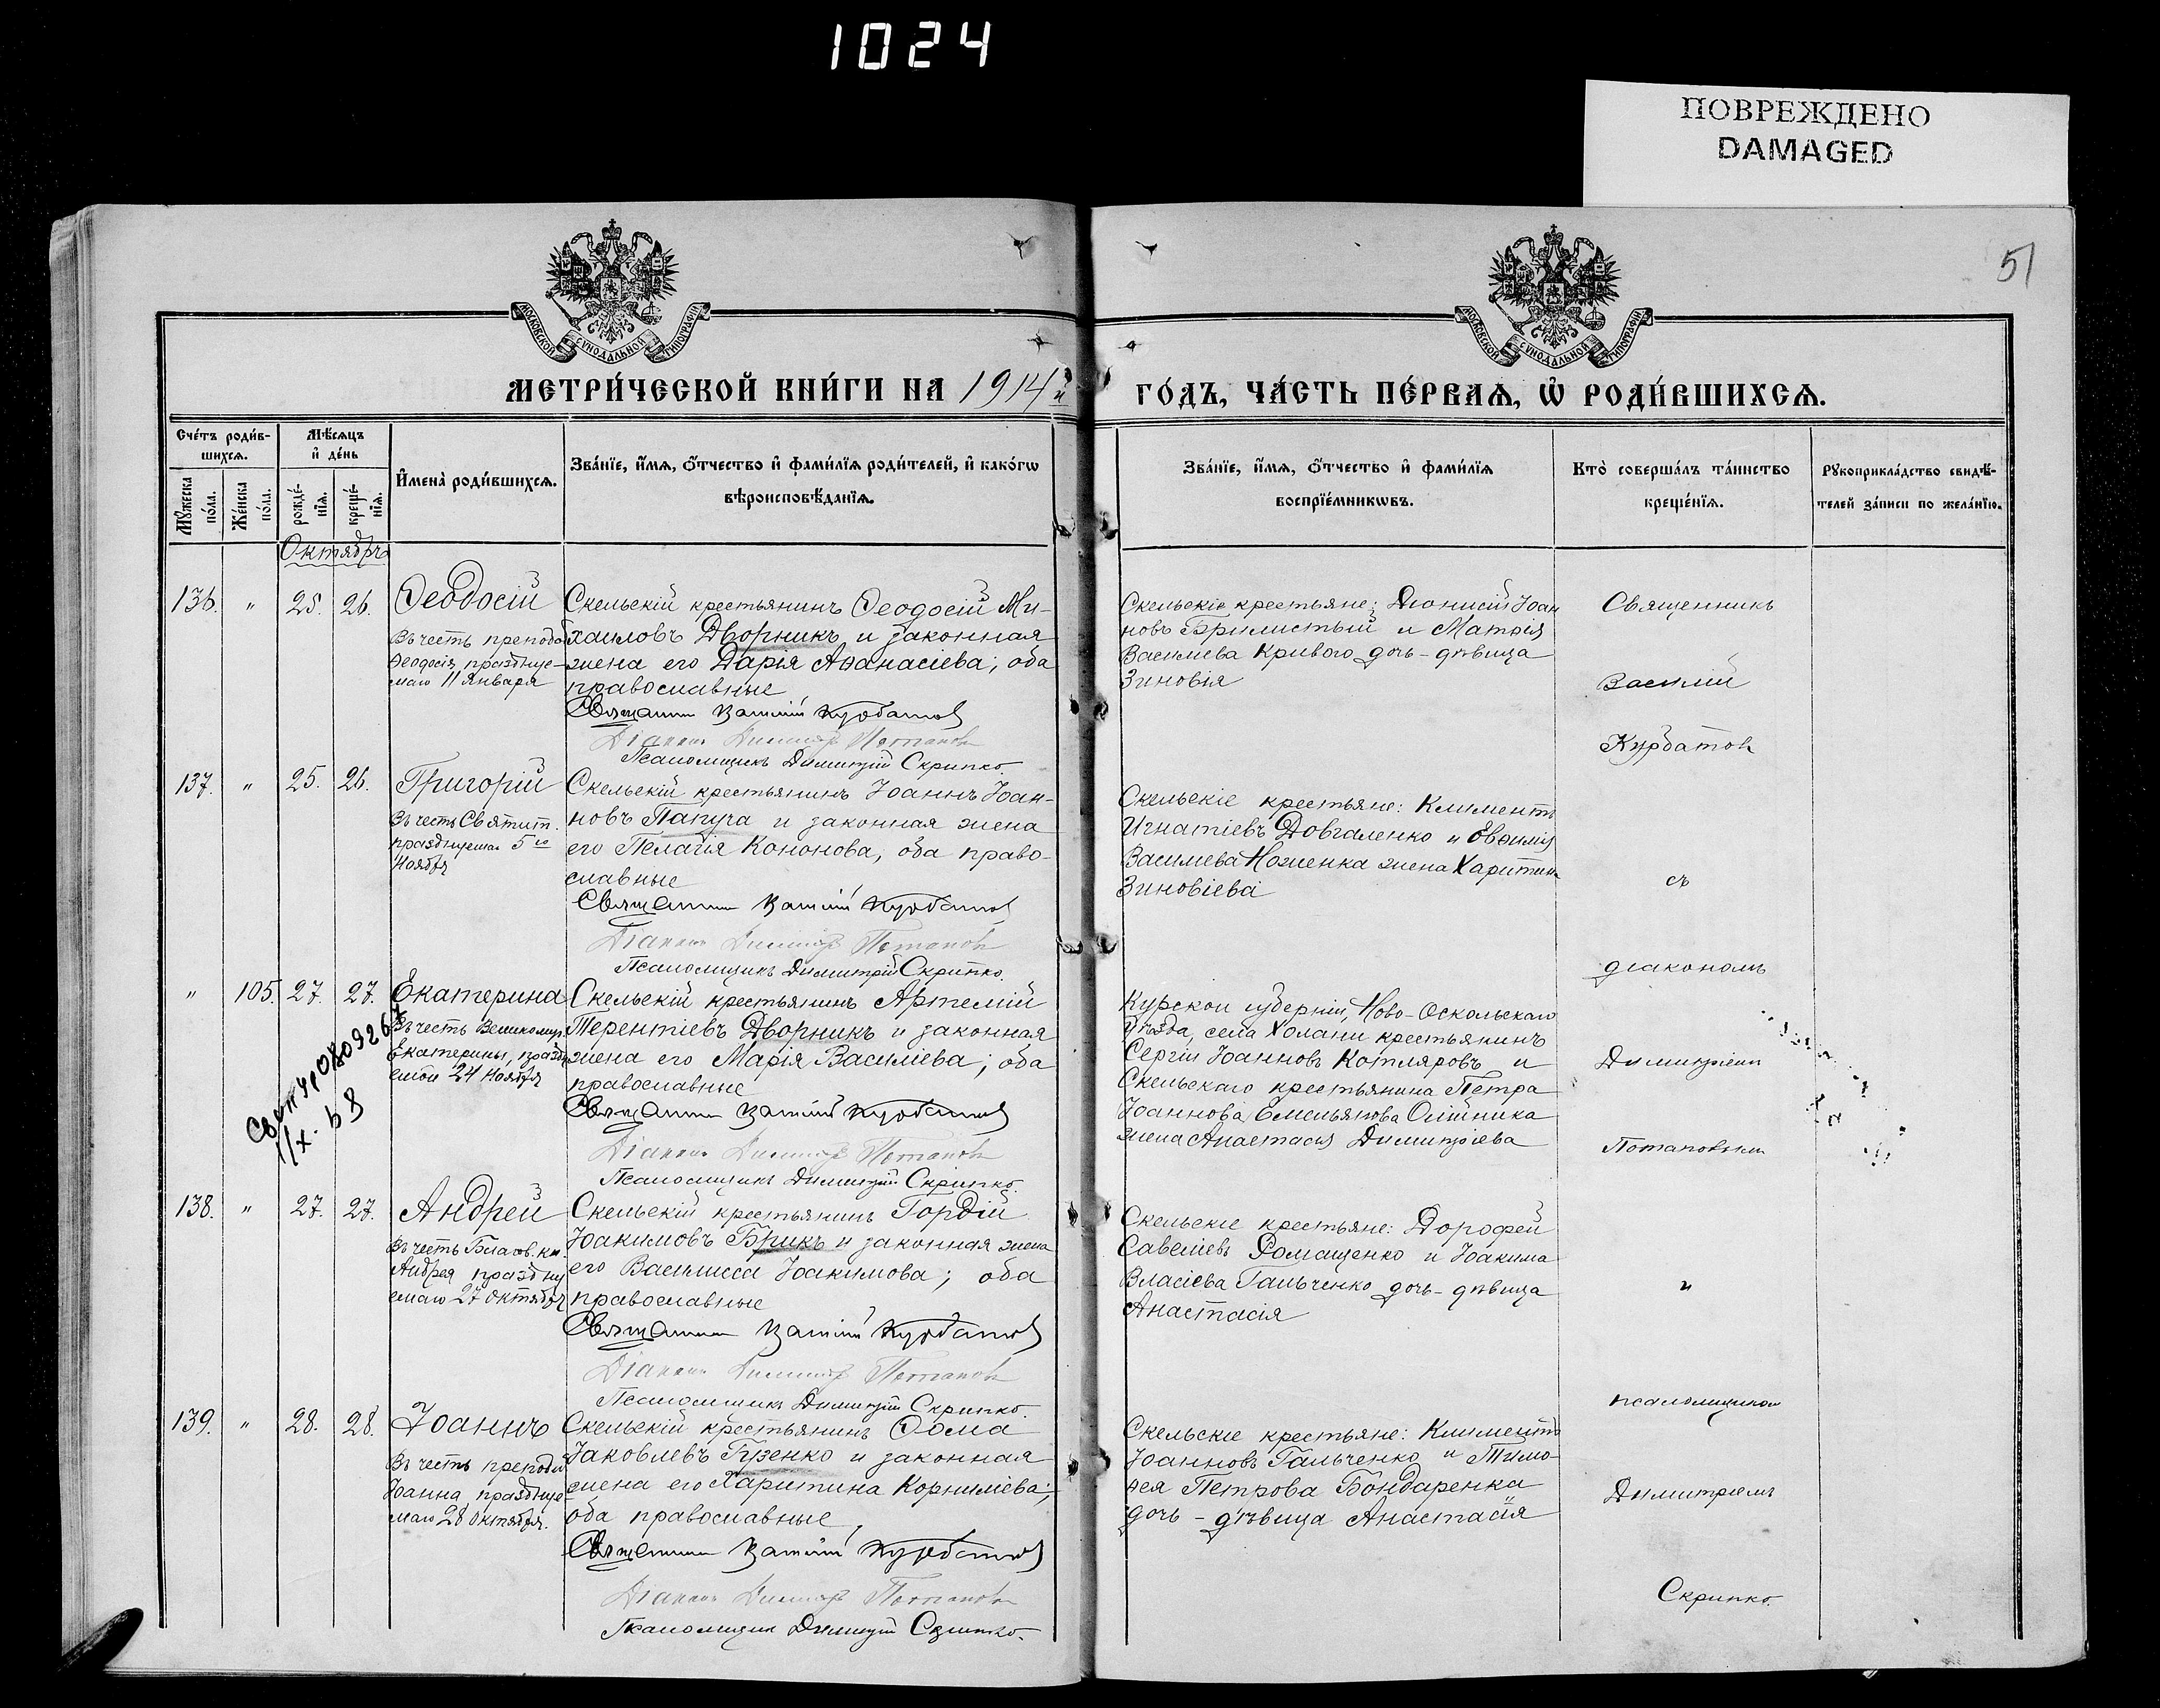 1024
ПОВРЕЖДЕНО
DAMAGED
51
МОСКОВСКОЙ СѴНОДАЛЬНОЙ ТИПОГРАФІИ
МОСКОВСКОЙ СѴНОДАЛЬНОЙ ТИПОГРАФІИ
МЕТРИ́ЧЕСКОЙ КНИ́ГИ НА 1914й
ГО́ДЪ, ЧА́СТЬ ПЕ́РВАѦ, Ѽ РОДИ́ВШИХСѦ.
Сче́тъ роди́в-
шихсѧ.
Мѣ́сѧцъ
и҆ де́нь
Мꙋ́жеска
по́ла.
Же́нска
по́ла.
рожде́-
нїѧ.
креще́-
нїѧ.
И҆мена̀ роди́вшихсѧ.
Зва́нїе, и҆́мѧ, ѻ҆́тчество и҆ фами́лїѧ роди́телей, и҆ како́гѡ
вѣроисповѣ́данїѧ.
Зва́нїе, и҆́мѧ, ѻ҆́тчество и҆ фами́лїѧ
воспрїе́мникѡвъ.
Кто̀ соверша́лъ та́инство
креще́нїѧ.
Рꙋкоприкла́дство свидѣ́-
телей за́писи по жела́нїю.
Октябрь
136. " 25. 26. Ѳеодосій
Въ честь преподоб
Ѳеодосія, празднуе-
маго 11 Января
Скельскій крестьянинъ Ѳеодосій Ми-
хаиловъ Дворникъ и законная
жена его Дарія Аѳанасіева; оба
православные
Священникъ Василій Курбатовъ
Діаконъ Димитрій Потаповъ
Псаломщикъ Димитрій Скрипко.
Скельскіе крестьяне: Діонисій Іоан
новъ Брилистый и Матѳія
Василіева Кривого дочь-дѣвица
Зиновія
Священникъ
Василій
Курбатовъ
137. " 25. 26. Григорій
Въ честь Святит.
празднуемаго 5го
Ноября
Скельскій крестьянинъ Іоаннъ Іоан-
новъ Папуча и законная жена
его Пелагія Кононова, оба право-
славные
Священникъ Василій Курбатовъ
Діаконъ Димитрій Потаповъ
Псаломщикъ Димитрій Скрипко.
Скельскіе крестьяне: Климентъ
Игнатіевъ Довгаленко и Евфимія
Василіева Ноженка жена Харитина
Зиновіева
съ
діакономъ
" 105. 27. 27. Екатерина
Въ честь Великомуч.
Екатерины, праздн
емой 24 Ноября
11/X. 68
Скельскій крестьянинъ Артемій
Терентіевъ Дворникъ и законная
жена его Марія Василіева; оба
православные
Священникъ Василій Курбатовъ
Діаконъ Димитрій Потаповъ
Псаломщикъ Димитрій Скрипко.
Курской губерніи, Ново-Оскольскаго
уѣзда, села Холани крестьянинъ
Сергій Іоанновъ Котляровъ и
Скельскаго крестьянина Петра
Іоаннова Емельянова Олійника
жена Анастасія Димитріева
Димитріемъ
Потаповымъ
138. " 27. 27. Андрей
Въ честь Благов. кн.
Андрея праздну
емаго 27 Октября
Скельскій крестьянинъ Гордій
Іоакимовъ Брикъ и законная жена
его Василисса Іоакимова; оба
православные
Священникъ Василій Курбатовъ
Діаконъ Димитрій Потаповъ
Псаломщикъ Димитрій Скрипко.
Скельскіе крестьяне: Дорофей
Савеліевъ Ромащенко и Іоакима
Власіева Гальченко дочь-дѣвица
Анастасія
и
псаломщикомъ
139. " 28. 28. Іоаннъ
Въ честь преподоб
Іоанна празднуе
маго 28 Октября.
Скельскій крестьянинъ Ѳома
Іаковлевъ Гузенко и законная
жена его Харитина Корниліева;
оба православные
Священникъ Василій Курбатовъ
Діаконъ Димитрій Потаповъ
Псаломщикъ Димитрій Скрипко.
Скельскіе крестьяне: Климентъ
Іоанновъ Гальченко и Тимо-
ѳея Петрова Бондаренка
дочь-дѣвица Анастасія
Димитріемъ
Скрипко.